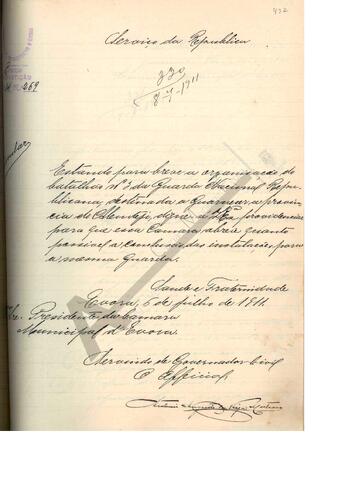 432
Serviço da Republica
330
8-7-1911
469
Estando para breve a organisação do
batalhão nº 3 da Guarda Nacional Repu-
blicana, destinado a guarnecer a provin-
cia do Alemtejo, digne-se V. Exª providenciar
para que essa Camara abrevie quanto
possivel a conclusão das instalações para
a mesma Guarda.
Saude e Fraternidade
Evora, 6 de julho de 1911.
Presidente da Camara
Municipal d'Evora.
Servindo de Governador Civil
O Official,